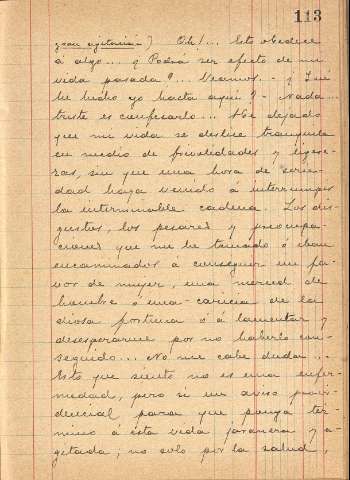 113
gran agitación) Oh!... Esto obedece
á algo... ¿Podrá ser efecto de mi
vida pasada?... Veamos.. ¿Que
he hecho yo hasta aquí?.. Nada...
triste es confesarlo... He dejado
que mi vida se deslice tranquila
en medio de frivolidades y ligere-
zas, sin que una hora de serie-
dad haya venido á interrumpir
la interminable cadena. Los dis-
gustos, los pesares y preocupa-
ciones que me he tomado ó iban
encaminados á conseguir un fa-
vor de mujer, una merced de
hombre ó una caricia de la
diosa fortuna ó á lamentar y
desesperarme por no haberlo con-
seguido... No me cabe duda...
Esto que siento no es una enfer-
medad, pero si un aviso provi-
dencial para que ponga tér-
mino á esta vida jaranera y a-
gitada; no solo por la salud,